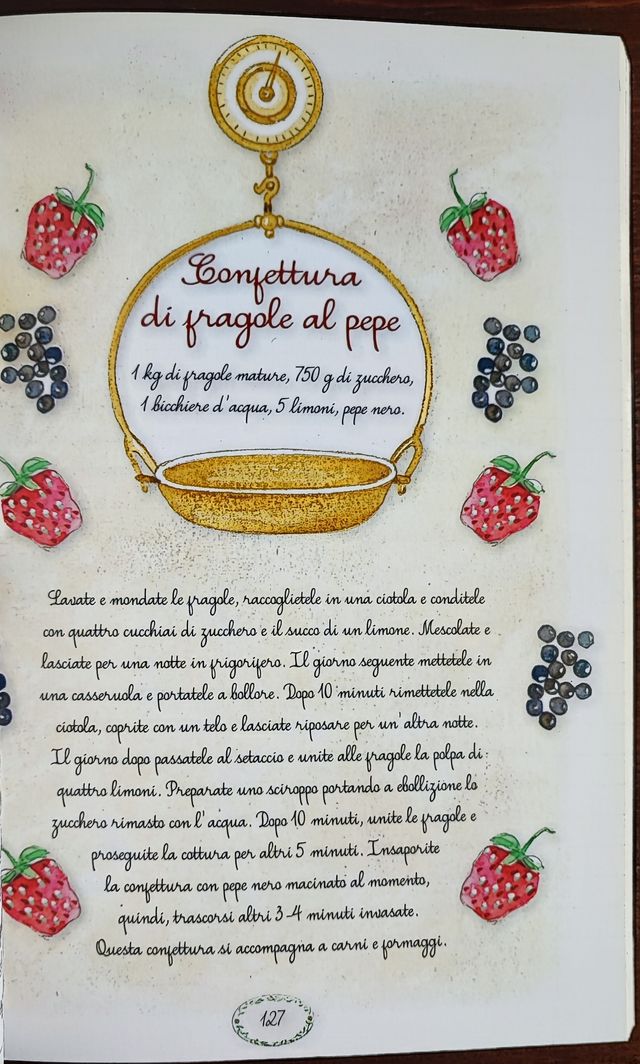 Confettura
di fragole al pepe
1 kg di fragole mature, 750 g di zucchero,
1 bicchiere d'acqua, 5 limoni, pepe nero.
Lavate e mondate le fragole, raccoglietele in una ciotola e conditele
con quattro cucchiai di zucchero e il succo di un limone. Mescolate e
lasciate per una notte in frigorifero. Il giorno seguente mettetele in
una casseruola e portatele a bollore. Dopo 10 minuti rimettetele nella
ciotola, coprite con un telo e lasciate riposare per un'altra notte.
Il giorno dopo passatele al setaccio e unite alle fragole la polpa di
quattro limoni. Preparate uno sciroppo portando a ebollizione lo
zucchero rimasto con l'acqua. Dopo 10 minuti, unite le fragole e
proseguite la cottura per altri 5 minuti. Insaporite
la confettura con pepe nero macinato al momento,
quindi, trascorsi altri 3-4 minuti invasate.
Questa confettura si accompagna a carni e formaggi.
127